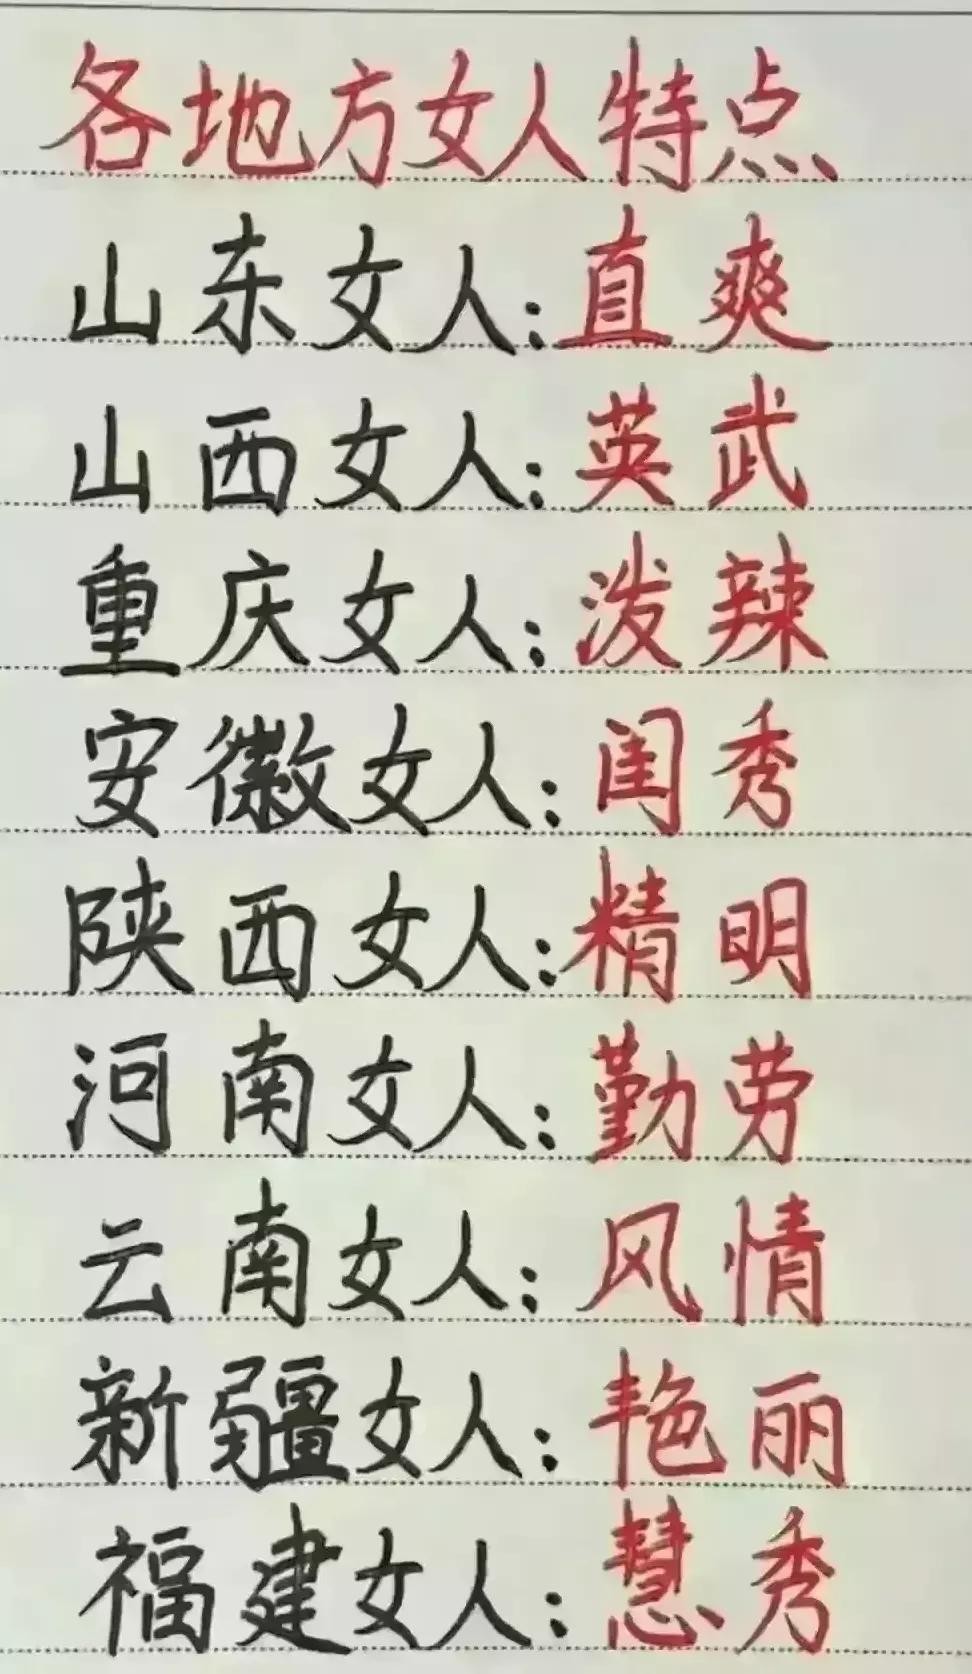 各地方女人特点
山东女人:直爽
山西女人:英武
重庆女人:泼辣
安徽女人:闺秀
陕西女人:精明
河南女人:勤劳
云南女人:风情
新疆女人:艳丽
福建女人:慧秀